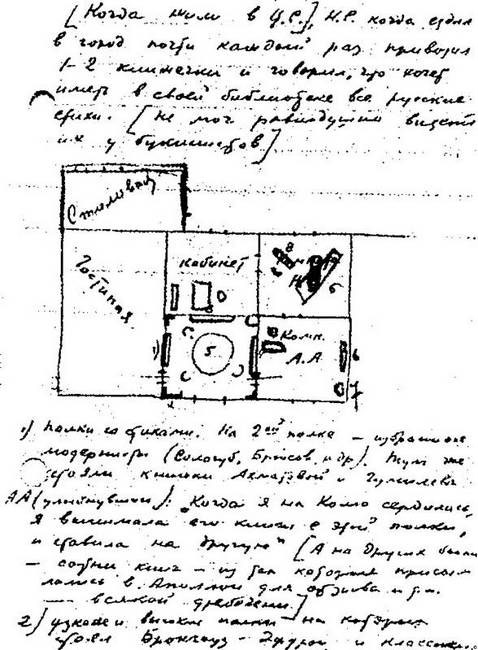 [Когда жили в Ц.С.], Н.С. когда ездил
в город почти каждый раз привозил
1-2 книжечки и говорил, что хочет
иметь в своей библиотеке все русские
стихи. [Не мог равнодушно видеть
их у букинистов].
Столовая
Гостиная
кабинет
8
6
5
1)
5.
8
Комн.
А.А
6
7
1) Полки со стихами. На 2ой полке – избранные
модернисты (Сологуб, Брюсов и др.). Тут же
стояли книжки Ахматовой и Гумилева
АА (улыбнувшись): „Когда я на Колю сердилась,
я вынимала его книги с этой полки,
и ставила на другую" [А на других были
– сотни книг – из тех которые присы-
лались в Аполлон для отзыва и т.п.
– всякой дребедени.]
2) узкие и высокие полки на которых
стоял Брокгауз-Эфрон и классики